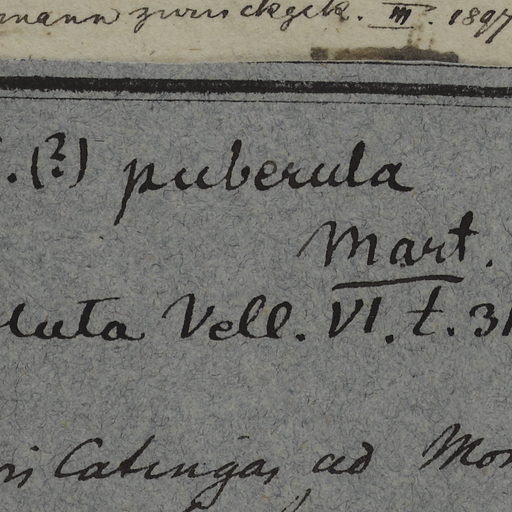 mann zurückgek. III. 1897
. (?) puberula
Mart.
luta Vell. VI. t. 31
Catingas ad Mon